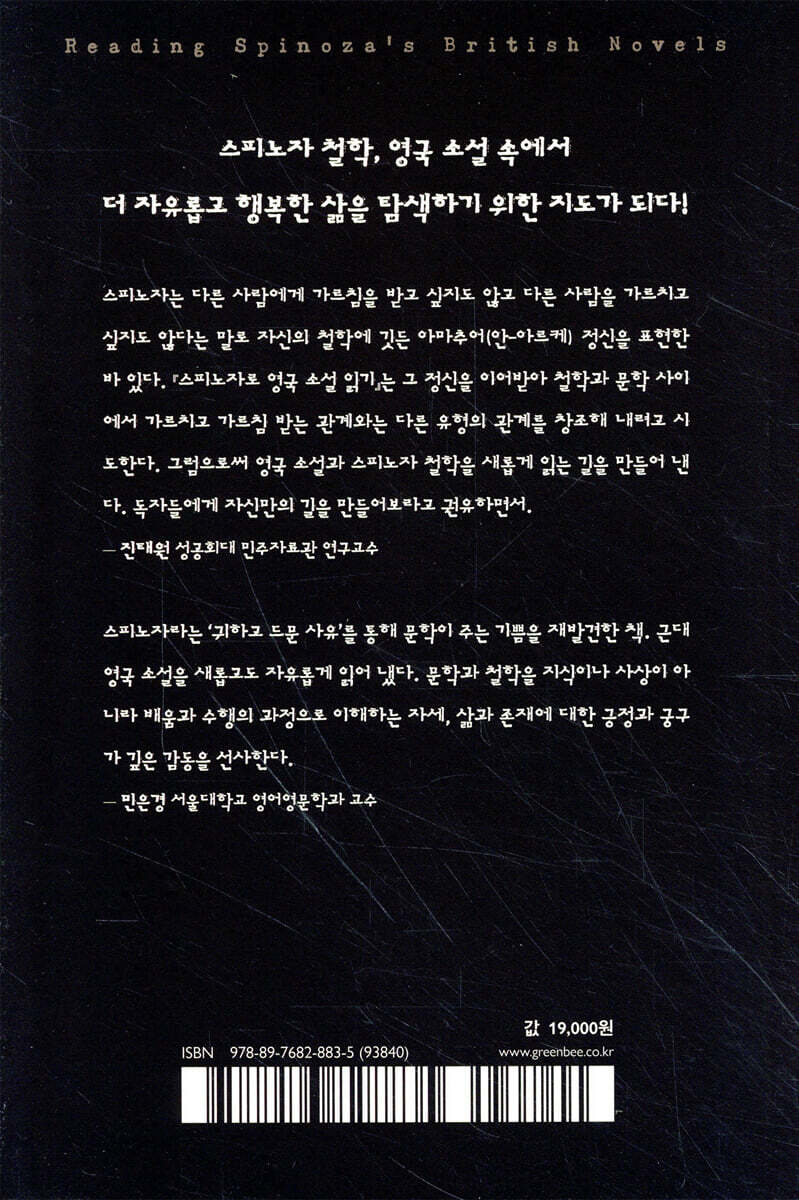 Reading Spinoza's British Novels
스피노자 철학, 영국 소설 속에서
더 자유롭고 행복한 삶을 탐색하기 위한 지도가 되다!
스피노자는 다른 사람에게 가르침을 받고 싶지도 않고 다른 사람을 가르치고
싶지도 않다는 말로 자신의 철학에 깃든 아마추어(안-아르케) 정신을 표현한
바 있다. 『스피노자로 영국 소설 읽기』는 그 정신을 이어받아 철학과 문학 사이
에서 가르치고 가르침 받는 관계와는 다른 유형의 관계를 창조해 내려고 시
도한다. 그럼으로써 영국 소설과 스피노자 철학을 새롭게 읽는 길을 만들어 낸
다. 독자들에게 자신만의 길을 만들어보라고 권유하면서.
— 진태원 성공회대 민주자료관 연구교수
스피노자라는 ‘귀하고 드문 사유’를 통해 문학이 주는 기쁨을 재발견한 책. 근대
영국 소설을 새롭고도 자유롭게 읽어 냈다. 문학과 철학을 지식이나 사상이 아
니라 배움과 수행의 과정으로 이해하는 자세, 삶과 존재에 대한 긍정과 궁구
가 깊은 감동을 선사한다.
— 민은경 서울대학교 영어영문학과 교수
값 19,000원
ISBN 978-89-7682-883-5 (93840)
www.greenbee.co.kr